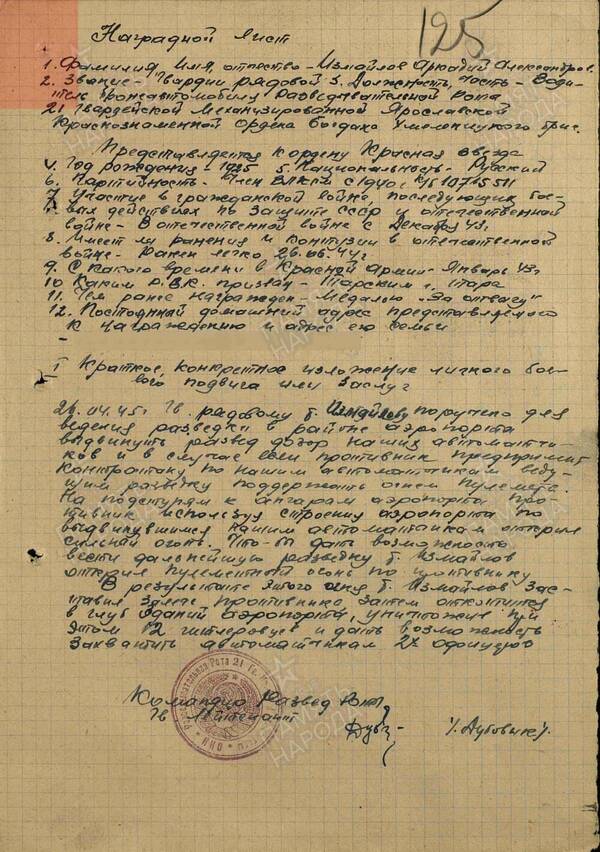 125
Наградной лист
1. Фамилия Имя отчество - Измайлов Аркадий Александров.
2. Звание - Гвардии рядовой 3. Должность, часть - Води-
тель бронеавтомобиля Разведывательной Рота
21 Гвардейской Механизированной Ярославской
Краснознаменной Ордена Богдана Хмельницкого бриг.
Представляется к ордену Красная звезда
4. Год рождения - 1925 5. Национальность - Русский
6. Партийность - Член ВЛКСМ с 1940г.
7. Участие в гражданской войне, последующих бое-
вых действиях по защите СССР и отечественной
войне - В отечественной войне с Декабря 43г.
8. Имеет ли ранения и контузии в отечественной
войне - Ранен легко 26.06.44г.
9. С какого времени в Красной Армии - Январь 43г
10. Каким Р.В.К. призван - Тарским г. Тара
11. Чем ранее награжден - Медалью "За отвагу"
12. Постоянный домашний адрес представляемого
к награждению и адрес его семьи
-
I Краткое, конкретное изложение личного бое-
вого подвига или заслуг
26.04.45г Гв. рядовому т. Измайлову поручено для
ведения разведки в районе аэропорта
выдвинуть развед дозор наших автоматчи-
ков и в случае если противник предпримит
контратаку по нашим автоматчикам веду-
щим разведку поддержать огнем пулемета.
На подступях к ангарам аэропорта про-
тивник используя строения аэропорта по
выдвинувшимся нашим автоматчикам открыл
сильный огонь. Что-бы дать возможность
вести дальнейшую разведку т. Измайлов
открыл пулеметный огонь по противнику
В результате этого огня т. Измайлов зас-
тавил залечь противника затем откатится
в глуб зданий аэропорта, уничтожив при
этом 12 гитлеровцев и дать возможность
захватить автоматчикам 2х офицеров
Командир Развед Роты
Гв Лейтенант
/Дубовик/
ПАМЯТЬ НАРОДА